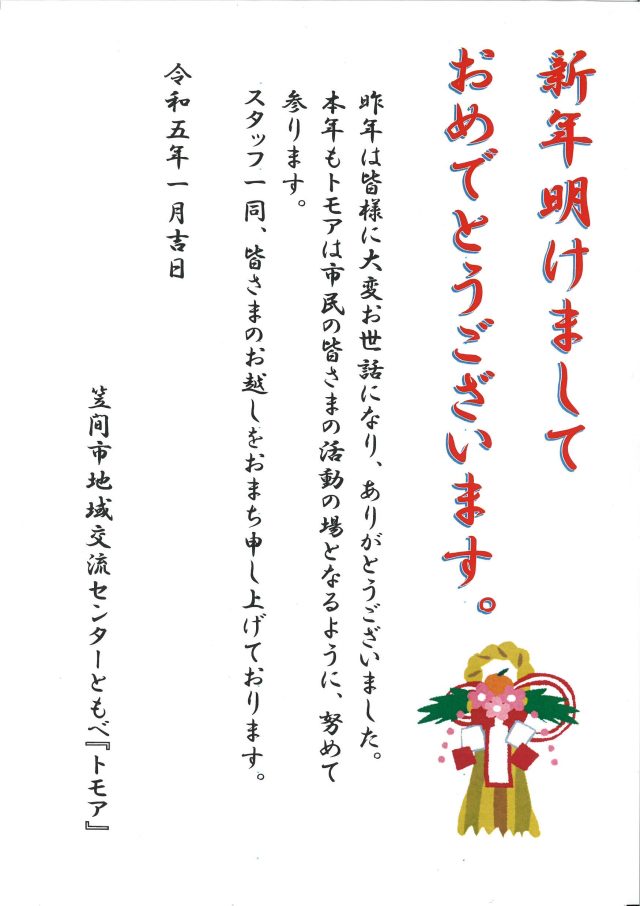 新年明けまして
おめでとうございます。
昨年は皆様に大変お世話になり、ありがとうございました。
本年もトモアは市民の皆さまの活動の場となるように、努めて
参ります。
スタッフ一同、皆さまのお越しをおまち申し上げております。
令和五年一月吉日
笠間市地域交流センターともべ『トモア』